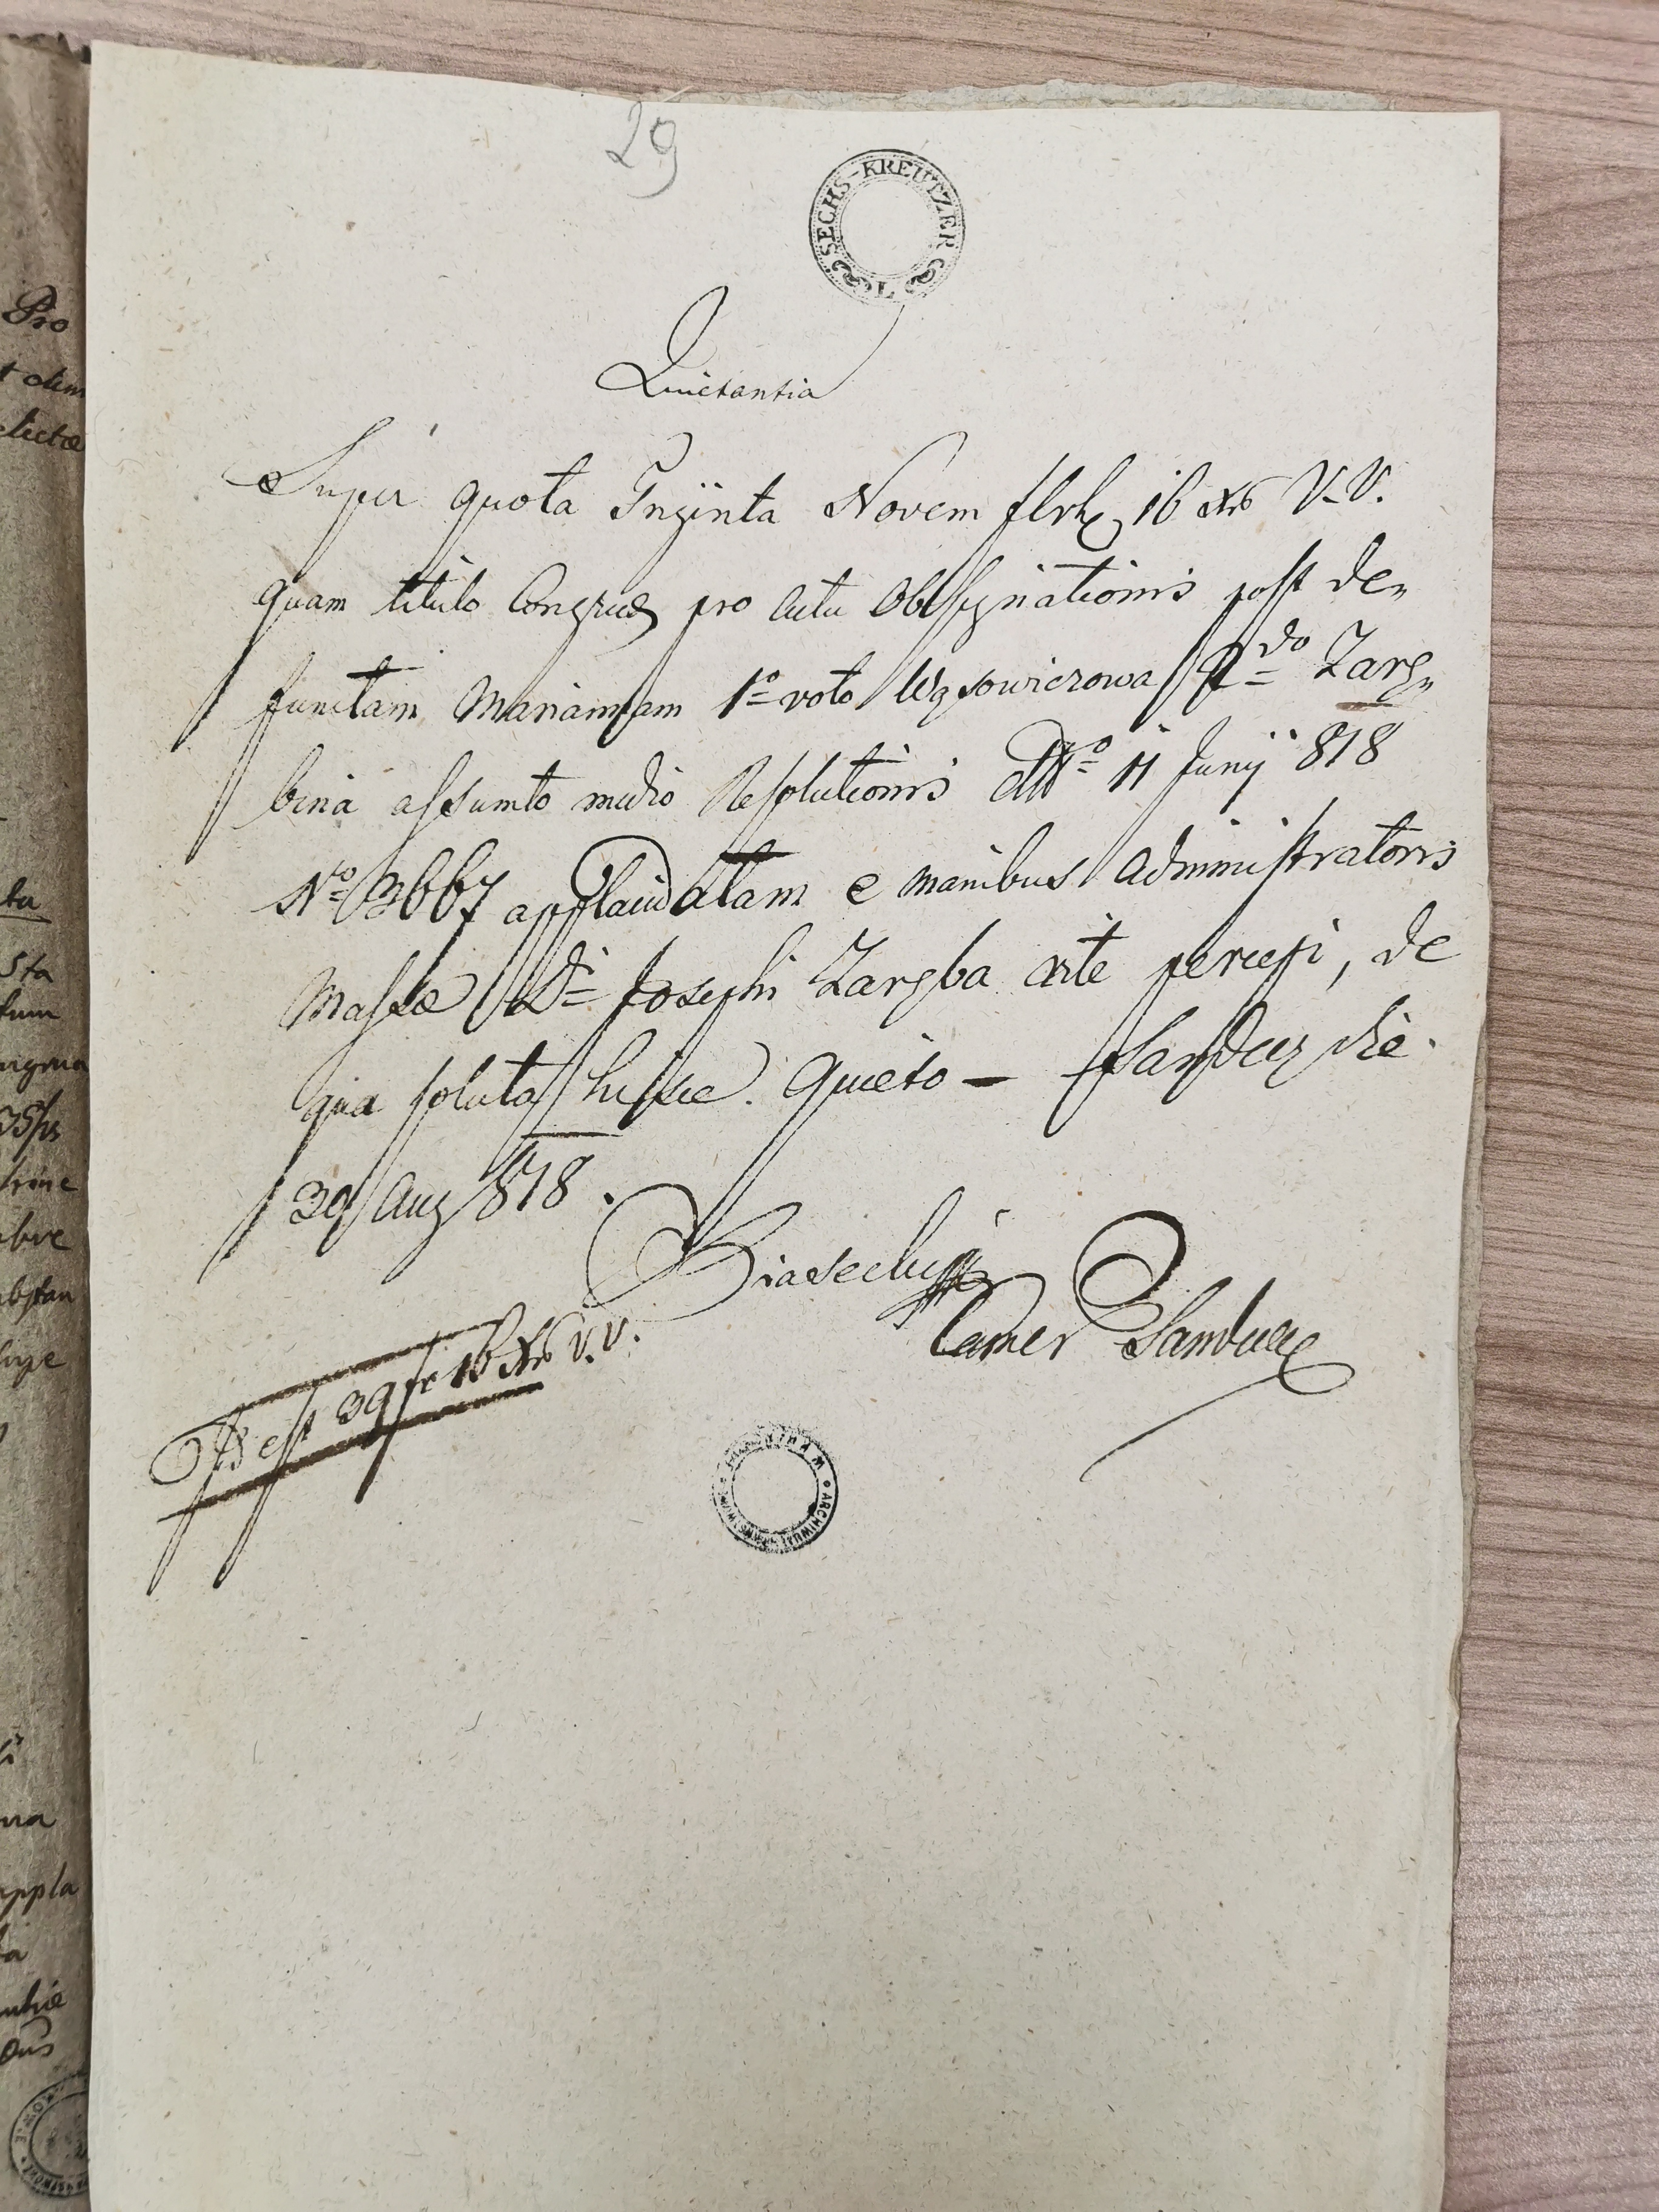 29
SECHS-KREUTZER
Quietantia
Super quota Triginta Novem flrh 16 Xr V.V.
quam titulo Congruæ pro Actu Obsignationis post de„
functam Mariannam 1º voto Wąsowiczowa 2do Zarę„
bina assumto medio Resolutionis ddto 11 Junij 818
Nº 3667 applacidatam e manibus Administratoris
Massæ Dni Josephi Zaręba rite percepi, de
qua soluta hisce Quieto — Sandez die
30 Aug 818.
Camer Sandec
Id est 39 fr 16 Xr V.V.
Pro
t olim
lecta
ta
sta
tum
brie
abstan
appla